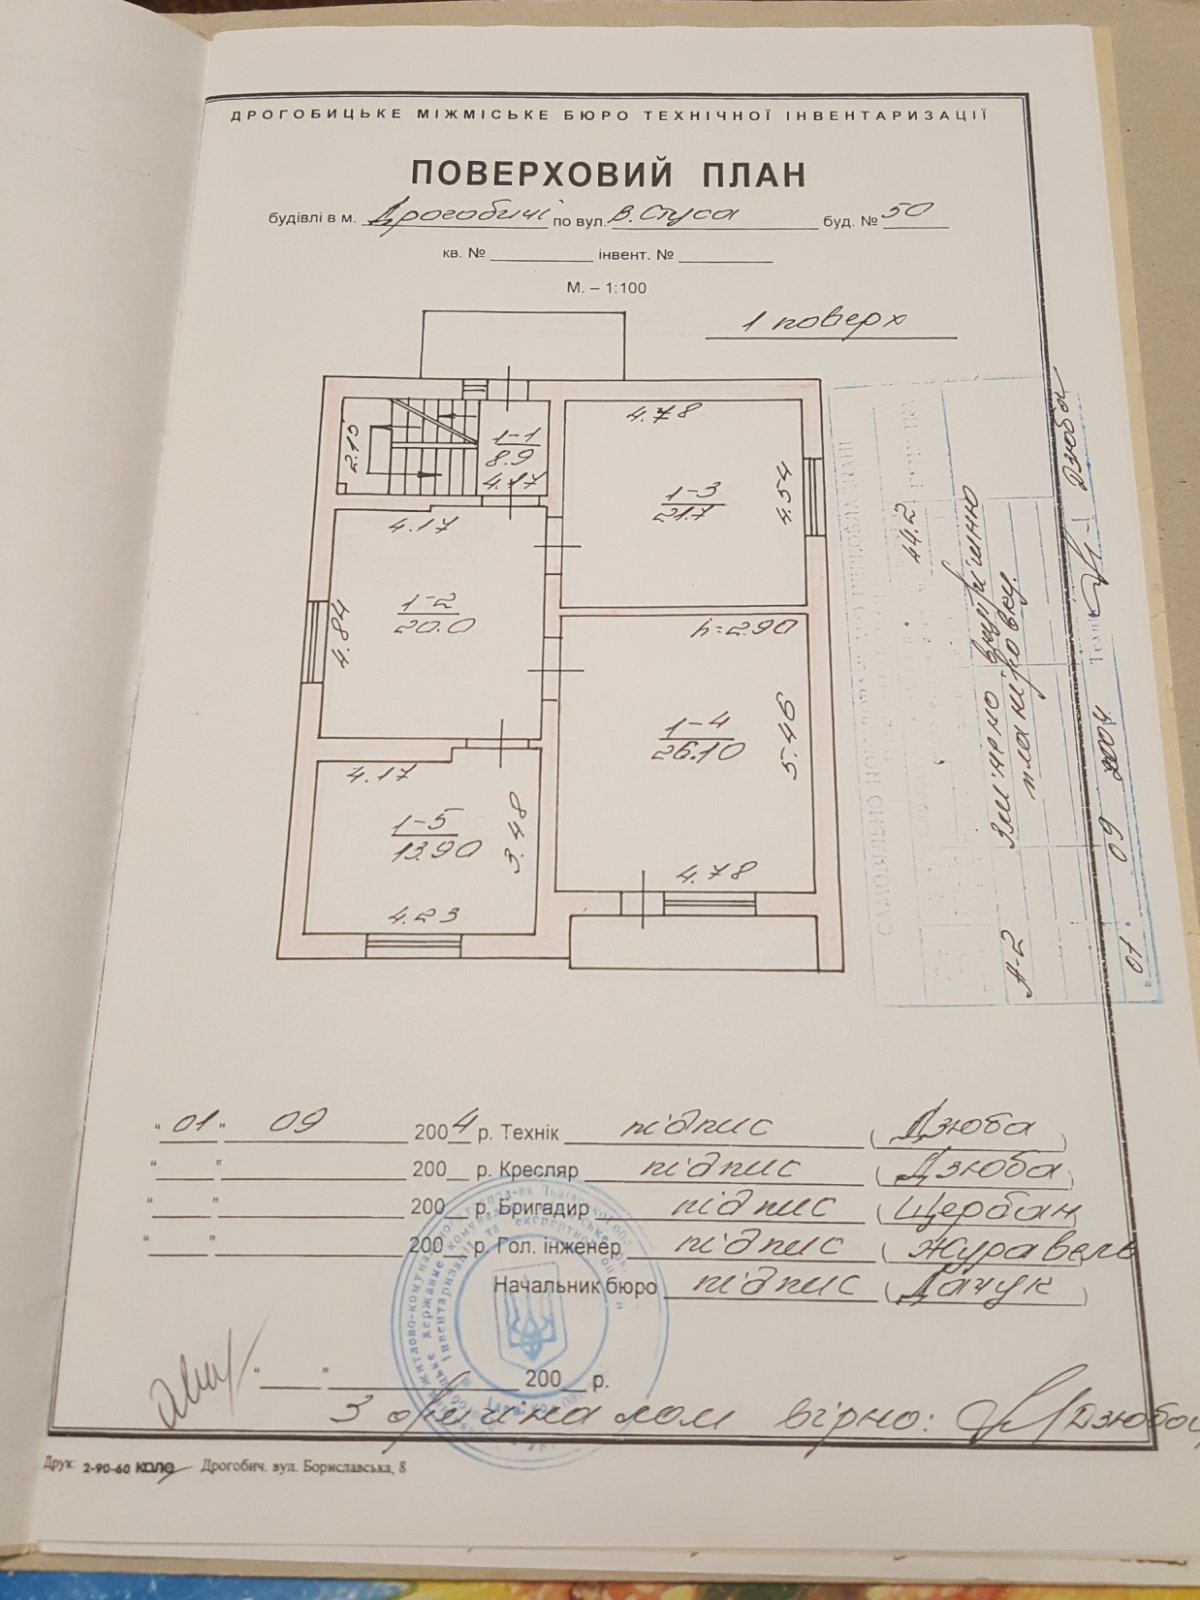 ДРОГОБИЦЬКЕ МІЖМІСЬКЕ БЮРО ТЕХНІЧНОЇ ІНВЕНТАРИЗАЦІЇ
ПОВЕРХОВИЙ ПЛАН
будівлі в м. Дрогобичі по вул. В. Стуса буд. № 50
кв. № інвент. №
М. – 1:100
1 поверх
4.78
2.15
1-1
8.9
4.17
1-3
21.7
4.54
4.17
1-2
20.0
4.84
h=2.90
1-4
26.10
5.46
4.17
1-5
13.90
3.48
4.78
4.23
САМОВІЛЬНО
44.2
А-2 Змінено внутрішню
планіровку.
01 09 2004 Дзюба
"01" 09 2004 р. Технік підпис (Дзюба)
" " 200 р. Кресляр підпис (Дзюба)
" " 200 р. Бригадир підпис (Щербан)
" " 200 р. Гол. інженер підпис (Журавель
Начальник бюро підпис (Дачук)
" " 200 р.
З оригіналом вірно: Дзюба
Друк: 2-90-60 КОЛО Дрогобич. вул. Бориславська, 8